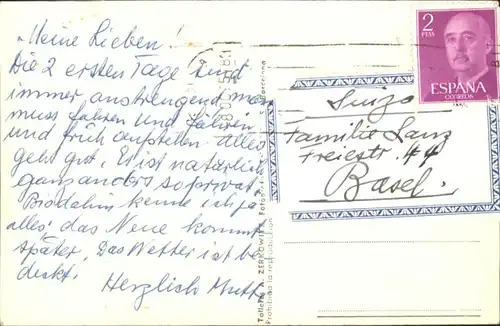 Meine Lieben!
Die 2 ersten Tage sind
immer anstrengend man
muss fahren und fahren
und früh aufstehen alles
geht gut. Es ist natürlich
ganz anders
kenne ich ja
alles, das Neue kommt
später. Das Wetter ist be
deckt.
Herzlich Mutti
2
PTAS
ESPAÑA
CORREOS
Suiza
Familie Lanz
Freiestr. 44
Basel.
Talleres A. ZERKOWITZ, Fotógrafo
Barcelona
Prohibida la reproducción